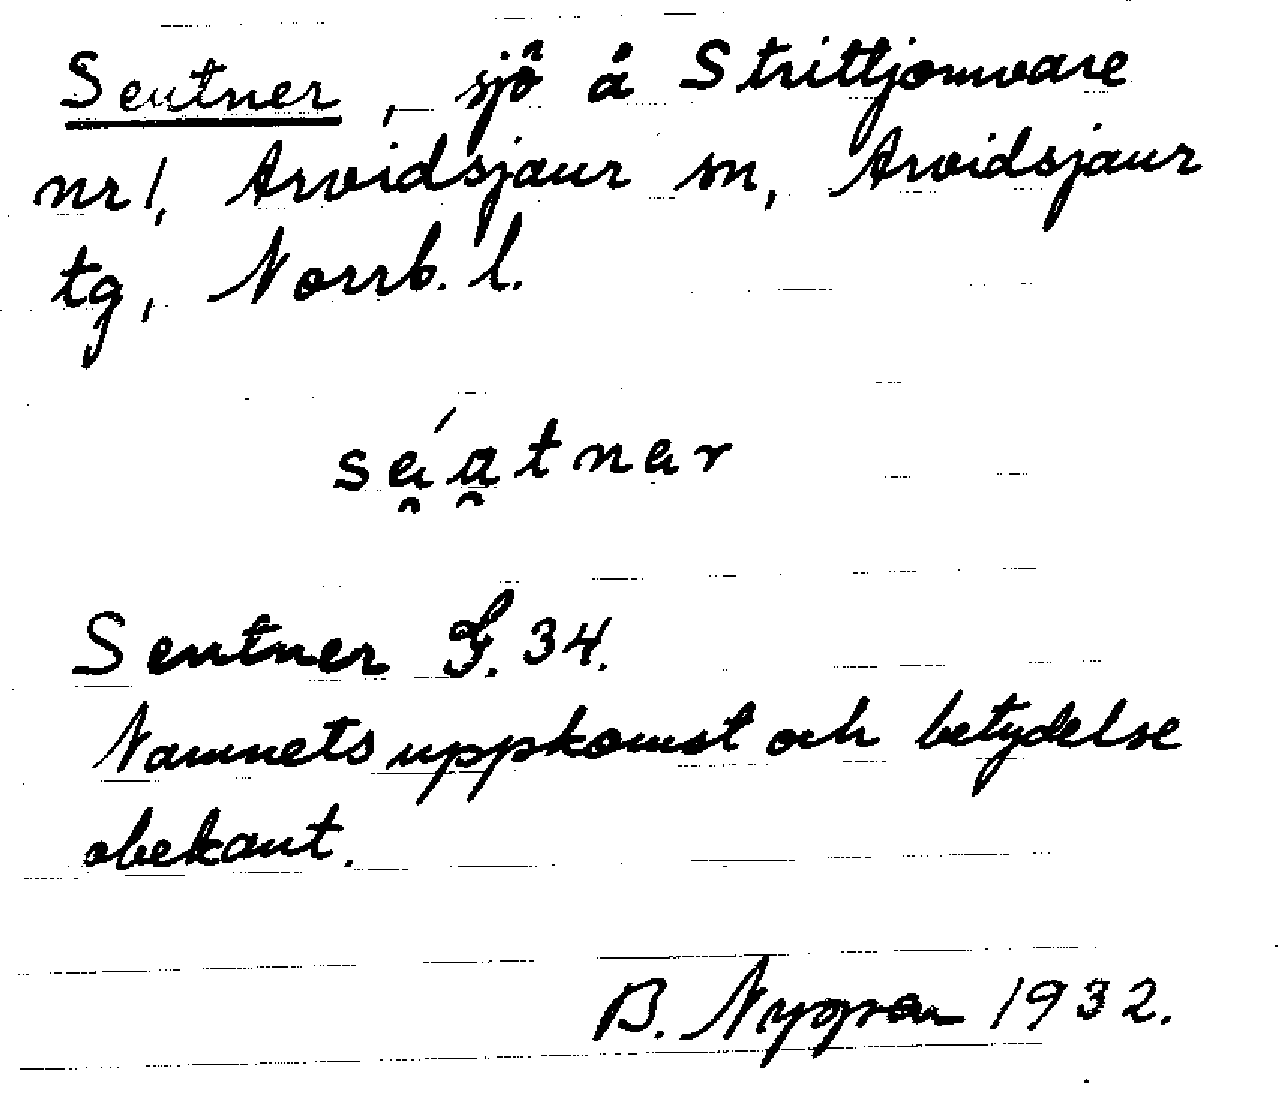 Seutner, sjö å Strittjomvare
nr 1, Arvidsjaur sn, Arvidsjaur
tg, Norrb. l.
se̯á̯tnar
Seutner G. 34.
Namnets uppkomst och betydelse
obekant.
B. 1932.